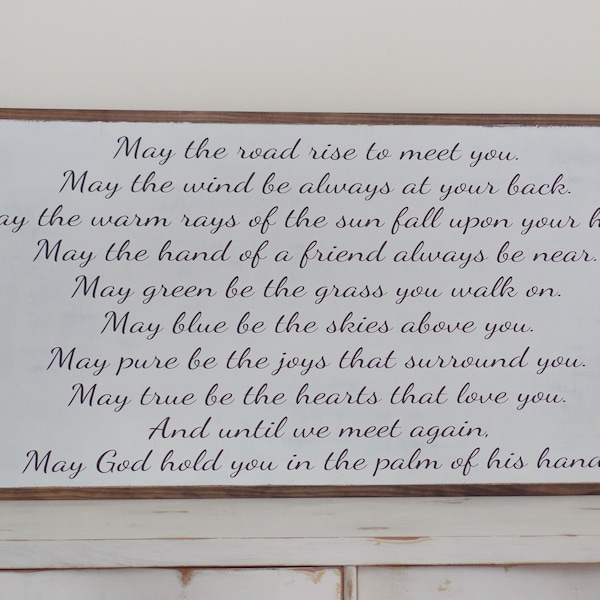 May the road rise to meet you.
May the wind be always at your back.
ay the warm rays of the sun fall upon your h
May the hand of a friend always be near.
May green be the grass you walk on.
May blue be the skies above you.
May pure be the joys that surround you.
May true be the hearts that love you.
And until we meet again,
May God hold you in the palm of his hand